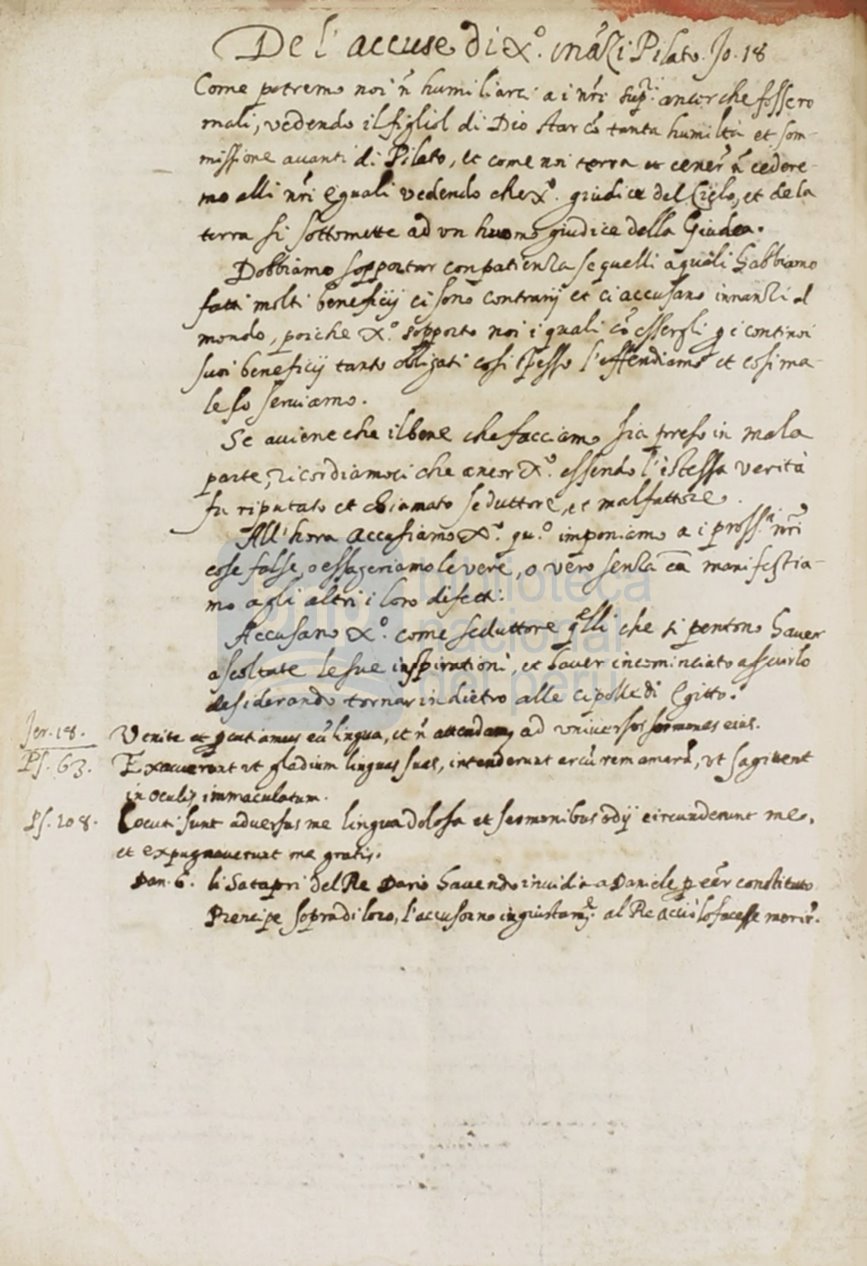 De l'accuse di Xº. inãzi Pilato. Jo. 18
Come potremo noi ñ humiliarci a i nr̃i sup.ri ancor che fossero
mali, vedendo il figliol di Dio star cõ tanta humiltà et som-
missione avanti di Pilato, et come noi terra et cener ñ cedere-
mo alli nr̃i eguali vedendo che Xº. giudice del Cielo, et de la
terra si sottomette ad vn huomo giudice della Giudea.
Dobbiamo sopportar con patienza se quelli a quali habbiamo
fatti molti beneficij ci sono contrarij et ci accusano innanzi al
mondo, poiche Xº. sopporto noi i quali cõ essergli p i continoi
suoi beneficij tanto obligati cosi spesso l'offendiamo et cosi ma-
le lo serviamo.
Se aviene che il bene che facciamo sia preso in mala
parte, ricordiamoci che ancor Xº. essendo l'istessa verità
fu riputato et chiamato seduttore, et malfattore.
All'hora accusiamo Xº. qu.º imponiamo a i pross.i nr̃i
cose false, o essageriamo le vere, o vero senza cã manifestia-
mo agli altri i loro difetti.
Accusano Xº. come seduttore q̃lli che si pentono haver
ascoltate le sue inspirationi, et haver incominciato a seguirlo
desiderando tornar in dietro alle cipolle di Egitto.
Jer. 18. Venite et percutiamus eũ lingua, et ñ attendamus ad vniversos sermones eius.
Ps. 63. Exacuerunt vt gladium linguas suas, intenderunt arcũ rem amarã, vt sagittent
in oculis immaculatum.
Ps. 108. Locuti sunt adversus me lingua dolosa et sermonibus odij circunderunt me,
et expugnaverunt me gratis.
Dan. 6. li Satapri del Re Dario havendo invidia a Daniele p esser constituto
Prencipe sopra di loro, l'accusorno ingiustam.e al Re acciò lo facesse morir.
biblioteca
nacional
del perú